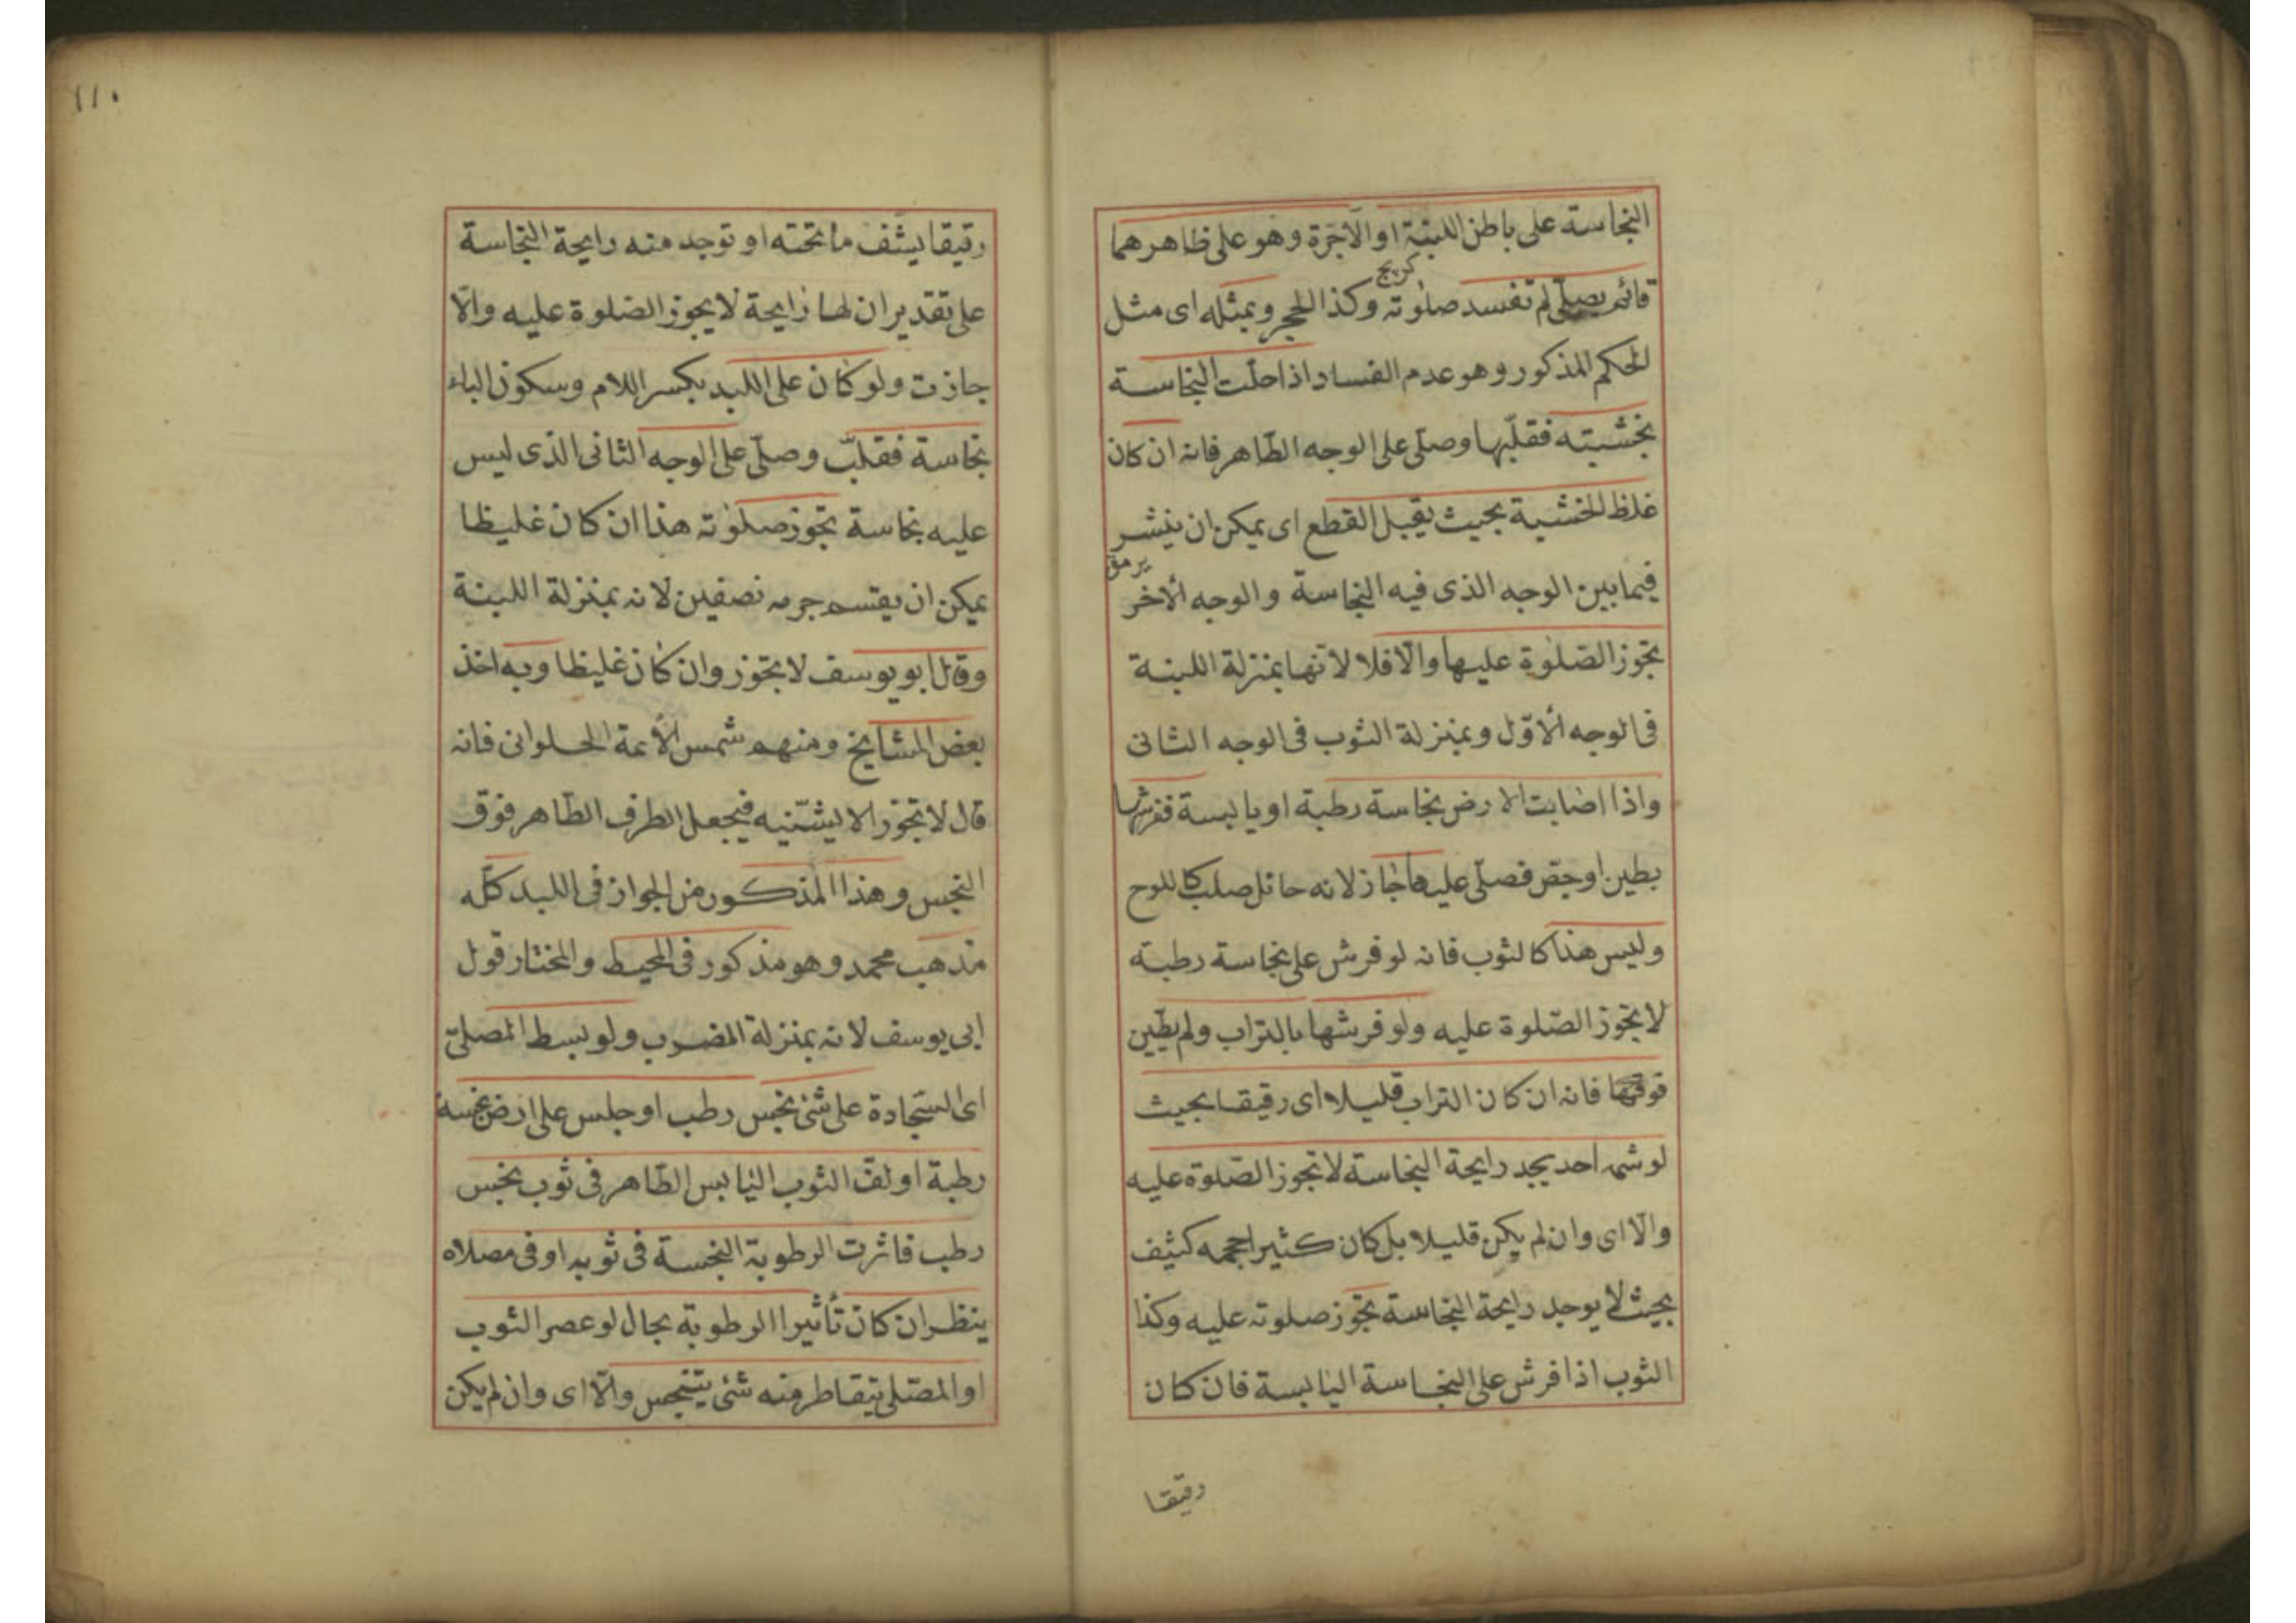 النجاسة على باطن اللبنة او الآجرة وهو على ظاهرهما
كريج
قائم يصلى لم تفسد صلوته وكذا الحجر وبمثله اى مثل
الحكم المذكور وهو عدم الفساد اذا حلت النجاسة
بخشبته فقلّبها وصلّى على الوجه الطّاهر فانه ان كان
غلظ الخشبة بحيث يقبل القطع اى يمكن ان ينشر
يرمق
فيما بين الوجه الذى فيه النجاسة والوجه الأخر
تجوز الصّلوة عليها والّا فلا لأنّها بمنزلة اللبنة
فى الوجه الأوّل وبمنزلة الثوب فى الوجه الثانى
واذا اصابت الارض نجاسة رطبة او يابسة ففرشها
بطين او جصّ فصلّى عليها جاز لانه حائل صلب كاللوح
وليس هذا كالثوب فانه لو فرش على نجاسة رطبة
لا تجوز الصّلوة عليه ولو فرشها بالتراب ولم يطيّن
فوقها فانه ان كان التراب قليلا اى رقيقا بحيث
لو شمه احد يجد رايحة النجاسة لا تجوز الصّلوة عليه
والّا اى وان لم يكن قليلا بل كان كثيرا حجمه كثيف
بحيث لا يوجد رايحة النجاسة تجوز صلوته عليه وكذا
الثوب اذا فرش على النجاسة اليابسة فان كان
رقيقا
١١٠
رقيقا يشف ما تحته او توجد منه رايحة النجاسة
على تقدير ان لها رايحة لا يجوز الصّلوة عليه والّا
جازت ولو كان على اللبد بكسر اللام وسكون الباء
نجاسة فقلبّ وصلّى على الوجه الثانى الذى ليس
عليه نجاسة تجوز صلوته هذا ان كان غليظا
يمكن ان يقسم جرمه نصفين لانه بمنزلة اللبنة
وقال ابو يوسف لا تجوز وان كان غليظا وبه اخذ
بعض المشايخ ومنهم شمس الأئمة الحلوانى فانه
قال لا تجوز الا ليثنّيه فيجعل الطرف الطّاهر فوق
النجس وهذا المذكور من الجواز فى اللبد كلّه
مذهب محمد وهو مذكور فى المحيط والمختار قول
ابى يوسف لانه بمنزلة المضرب ولو بسط المصلّى
اى السجّادة على شئ نجس رطب او جلس على ارض نجسة
رطبة او لفّ الثوب اليابس الطّاهر فى ثوب نجس
رطب فاثرت الرطوبة النجسة فى ثوبه او فى مصلاه
ينظر ان كان تأثيرا الرطوبة بحال لو عصر الثوب
او المصّلى يتقاطر منه شئ يتنجس والّا اى وان لم يكن